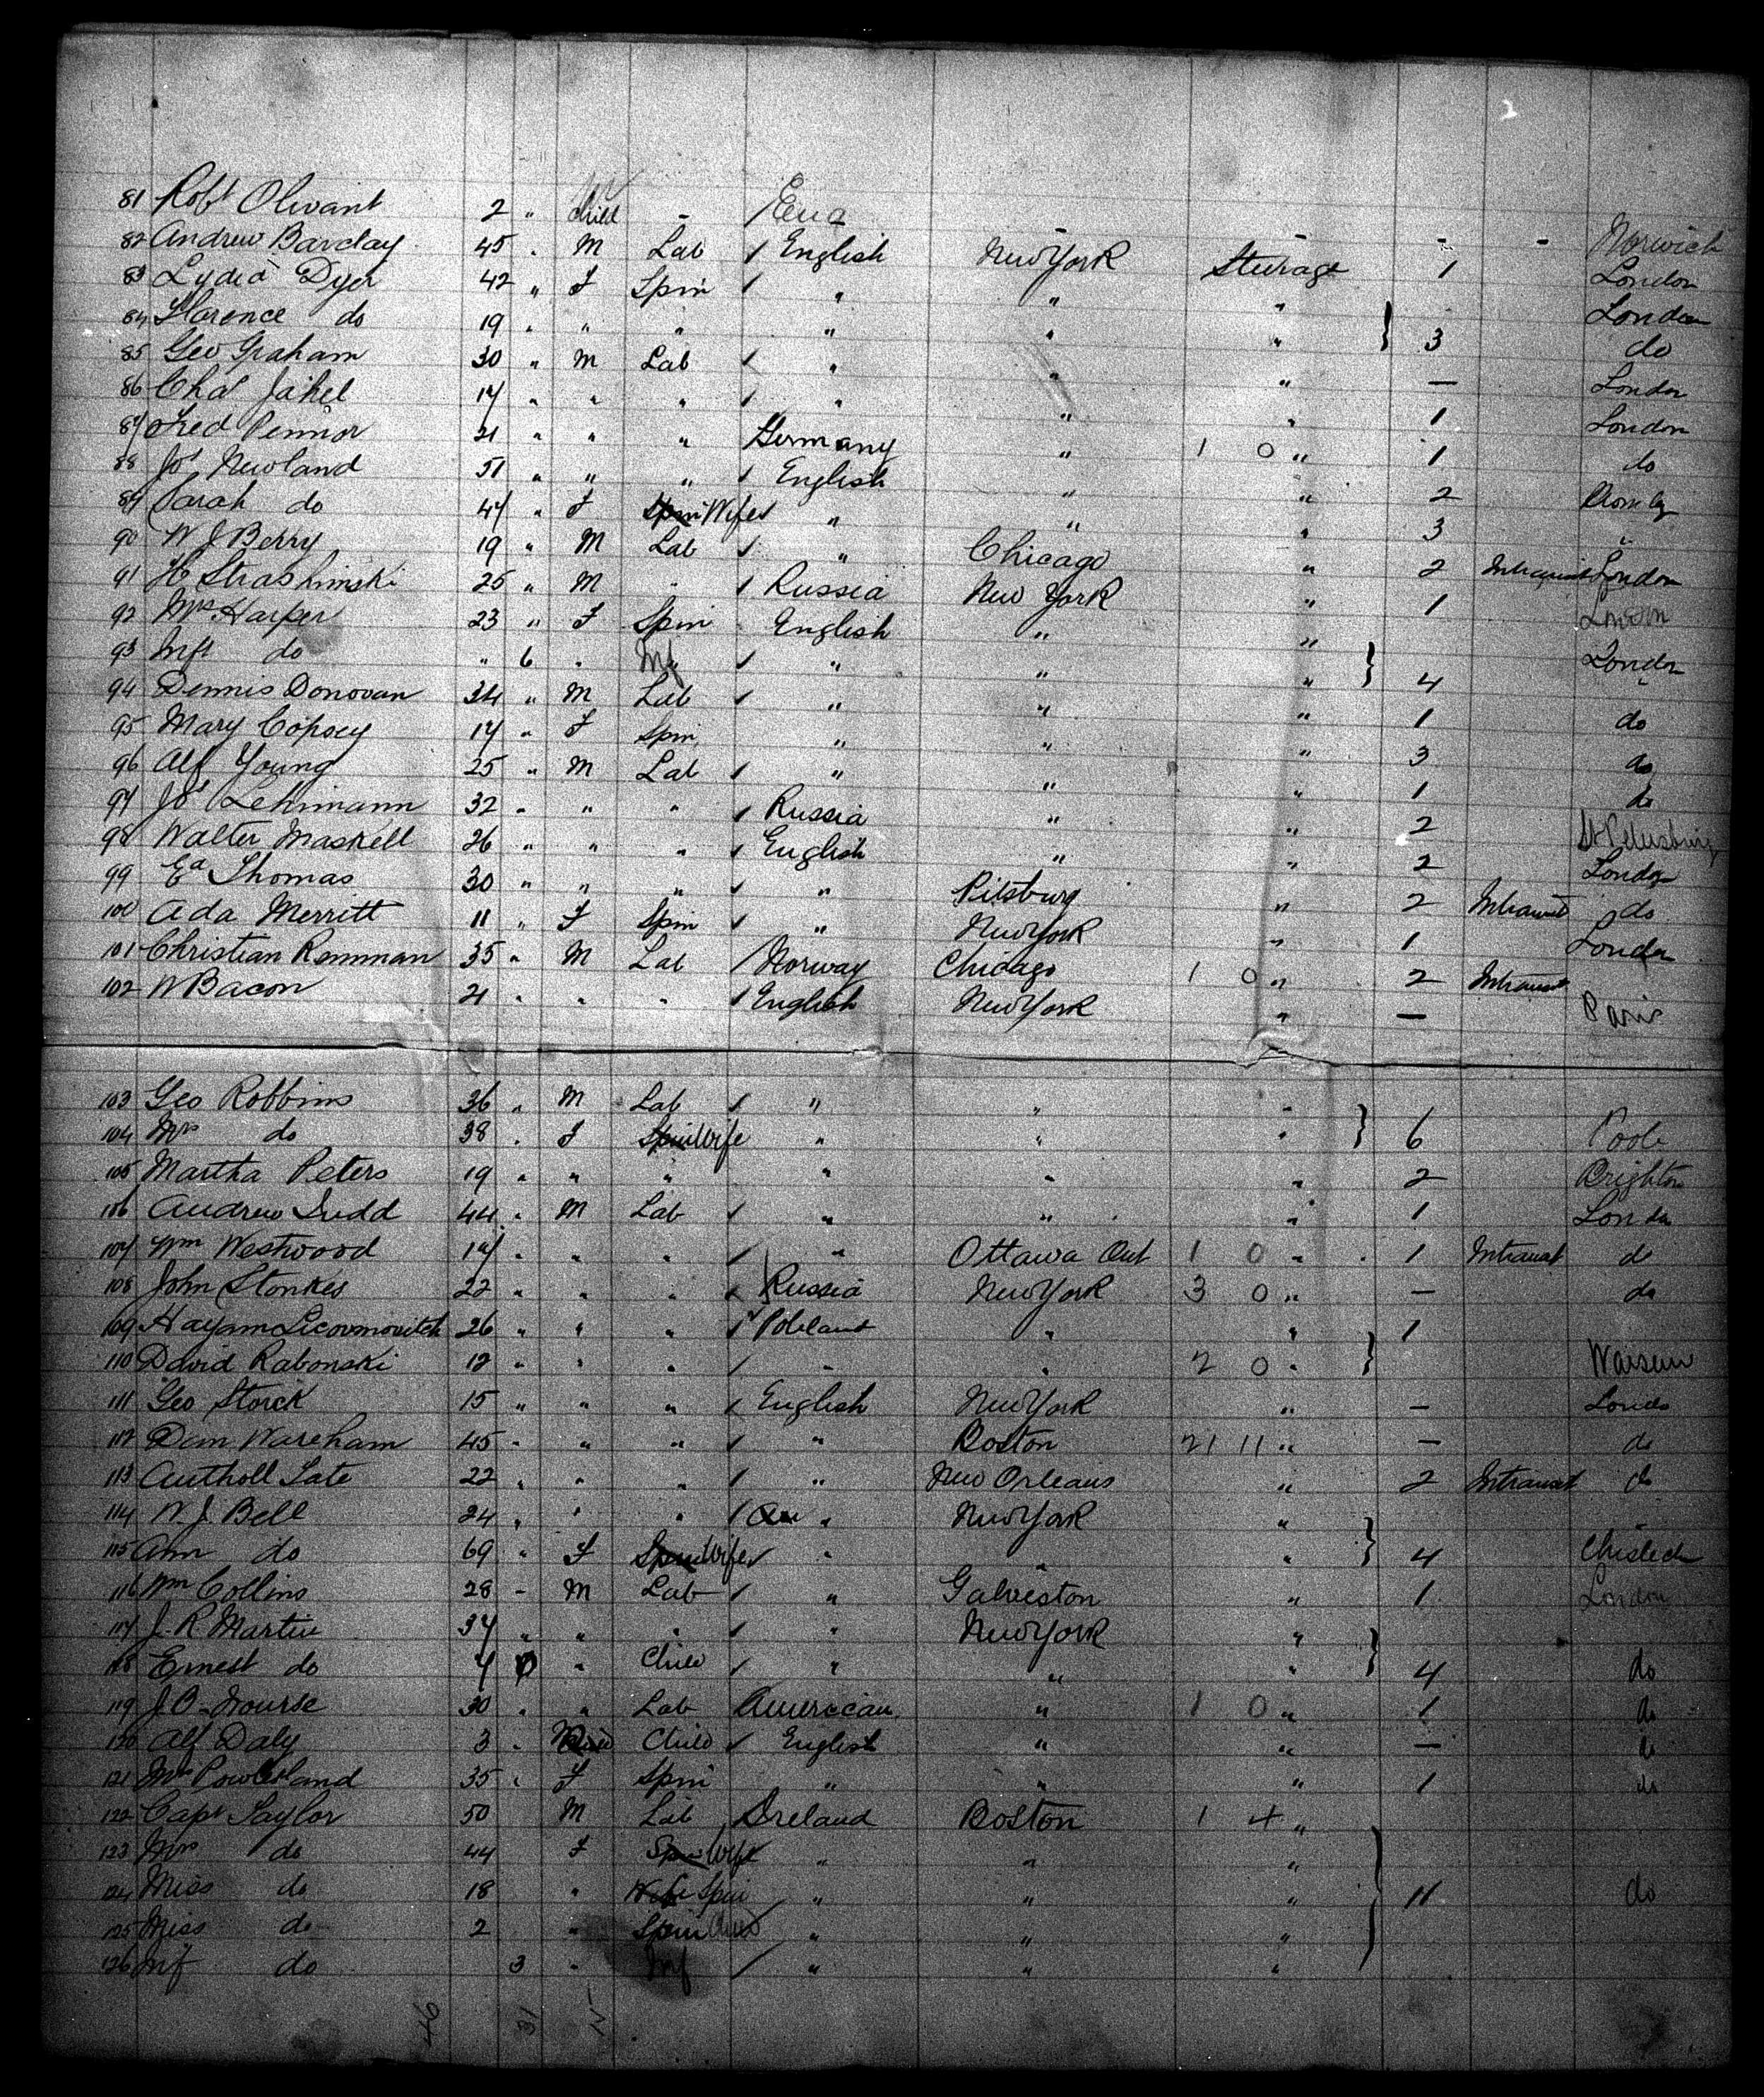 81 Robt Olivant 2 " child - Eng - - - Norwich
82 Andrew Barclay 45 " M Lab English New York Steerage 1 London
83 Lydia Dyer 42 " F Spin " " " London
84 Florence do 19 " " " " " " 3 do
85 Geo Graham 30 " M Lab " " " — London
86 Chas Jakel 17 " " " " " " 1 London
87 Fred Pennor 21 " " " Germany " 1 0 " 1 do
88 Jos Newland 51 " " " English " " 2
89 Sarah do 47 " F Wife " " " 3 "
90 W J Berry 19 " M Lab " Chicago " 2 Intransit London
91 H Strashinski 25 " M " Russia New York " 1 London
92 Mrs Harper 23 " F Spin English " " London
93 Inft do " 6 " Inf " " " 4 "
94 Dennis Donovan 34 " M Lab " " " 1 do
95 Mary Copsey 17 " F Spin " " " 3 do
96 Alf Young 25 " M Lab " " " 1 do
97 Jos Lehimann 32 " " " Russia " " 2 St Petersburg
98 Walter Maskell 26 " " " English " " 2 London
99 Ed Thomas 30 " " " " Pitsburg " 2 Intransit do
100 Ada Merritt 11 " F Spin " New York " 1 London
101 Christian Remman 35 " M Lab Norway Chicago 1 0 " 2 Intransit
102 W Bacon 21 " " " English New York " — Paris
103 Geo Robbins 36 " M Lab " " "
104 Mrs do 38 " F Wife " " " 6 Poole
105 Martha Peters 19 " " " " " " 2 Brighton
106 Andrew Judd 44 " M Lab " " " 1 London
107 Wm Westwood 17 " " " " Ottawa Ont 1 0 " 1 Intransit do
108 John Stonkes 22 " " " Russia New York 3 0 " — do
109 Hayam 26 " " " Poleland " " 1
110 David Rabonski 12 " " " " " 2 0 " Warsaw
111 Geo Storck 15 " " " English New York " — London
112 Dan Wareham 45 " " " " Boston 21 11 " — do
113 Tate 22 " " " " New Orleans " 2 Intransit do
114 W. J. Bell 24 " " " " New York "
115 Ann do 69 " F Wife " " " 4
116 Wm Collins 28 - M Lab " Galveston " 1 London
117 J. R Martin 37 " " " " New York "
118 Ernest do 7 " Child " " " 4 do
119 J. B. Nourse 30 " " Lab American " 1 0 " 1 do
120 Alf Daly 3 " Child English " " — do
121 Mrs 35 " F Spin " " " 1 do
122 Capt Taylor 50 M Lab Ireland Boston 1 4 "
123 Mrs do 44 F Wife " " "
124 Miss do 18 " Spin " " " 11 do
125 Miss do 2 " Child " " "
126 Inf do 3 " Inf " " "
46 31